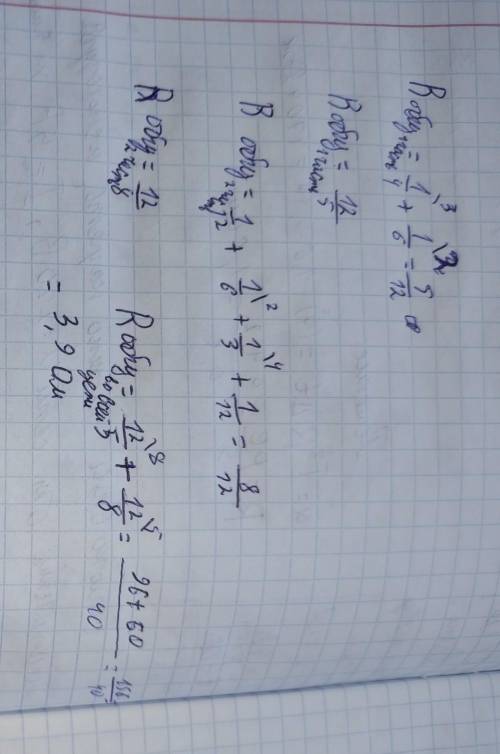 R общ 1 части = 1/4 \3 + 1/6 \2 = 5/12
R общ 1 части = 12/5
R общ 2 части = 1/12 + 1/6 \2 + 1/3 \4 + 1/12 = 8/12
R общ 2 части = 12/8
R общ во всей цепи = 12/5 \8 + 12/8 \5 = (96 + 60)/40 = 156/40
= 3,9 Ом